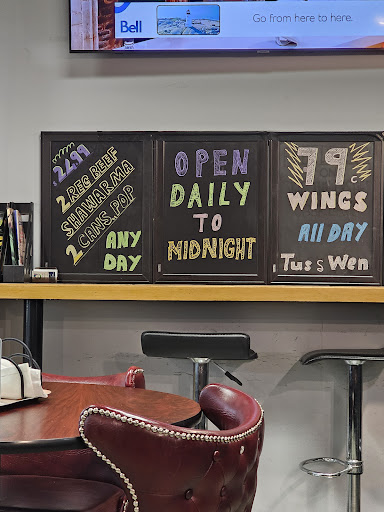 Bell
Go from here to here.
22.99
2 REG BEEF
SHAWARMA
2 CANS.POP
ANY
DAY
OPEN
DAILY
TO
MIDNIGHT
79 c
WINGS
All DAY
Tus & Wen